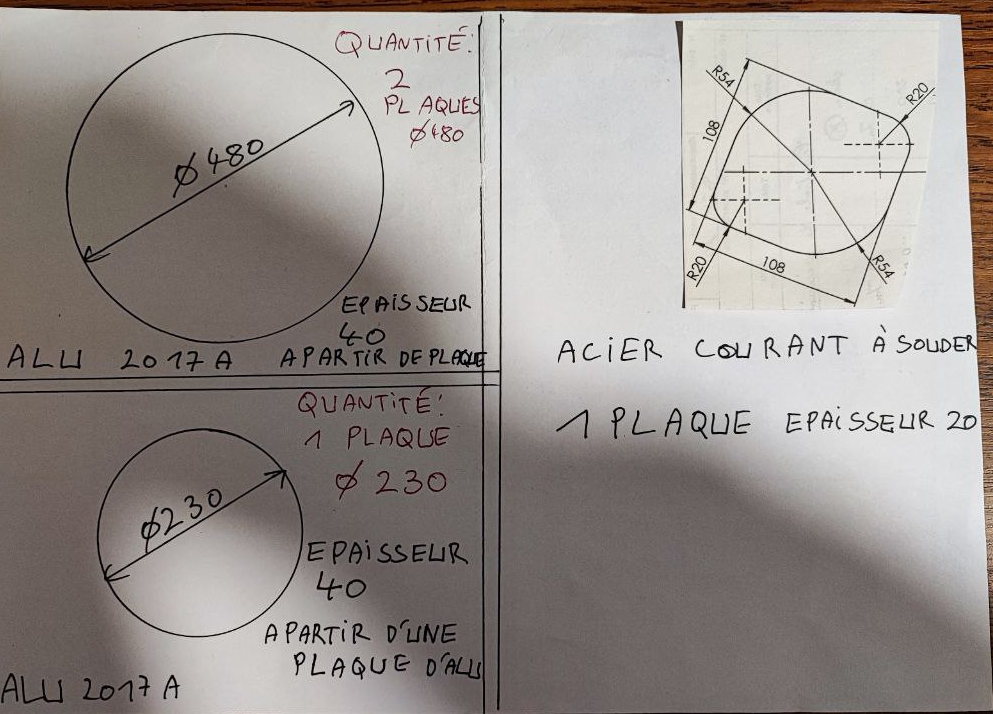 QUANTITÉ:
2
PLAQUES
Ø480
Ø480
EPAISSEUR
40
ALU 2017A APARTIR DE PLAQUE
QUANTITÉ:
1 PLAQUE
Ø 230
Ø230
EPAISSEUR
40
APARTIR D'UNE
PLAQUE D'ALU
ALU 2017A
R54
R20
108
R20
108
R54
ACIER COURANT À SOUDER
1 PLAQUE EPAISSEUR 20